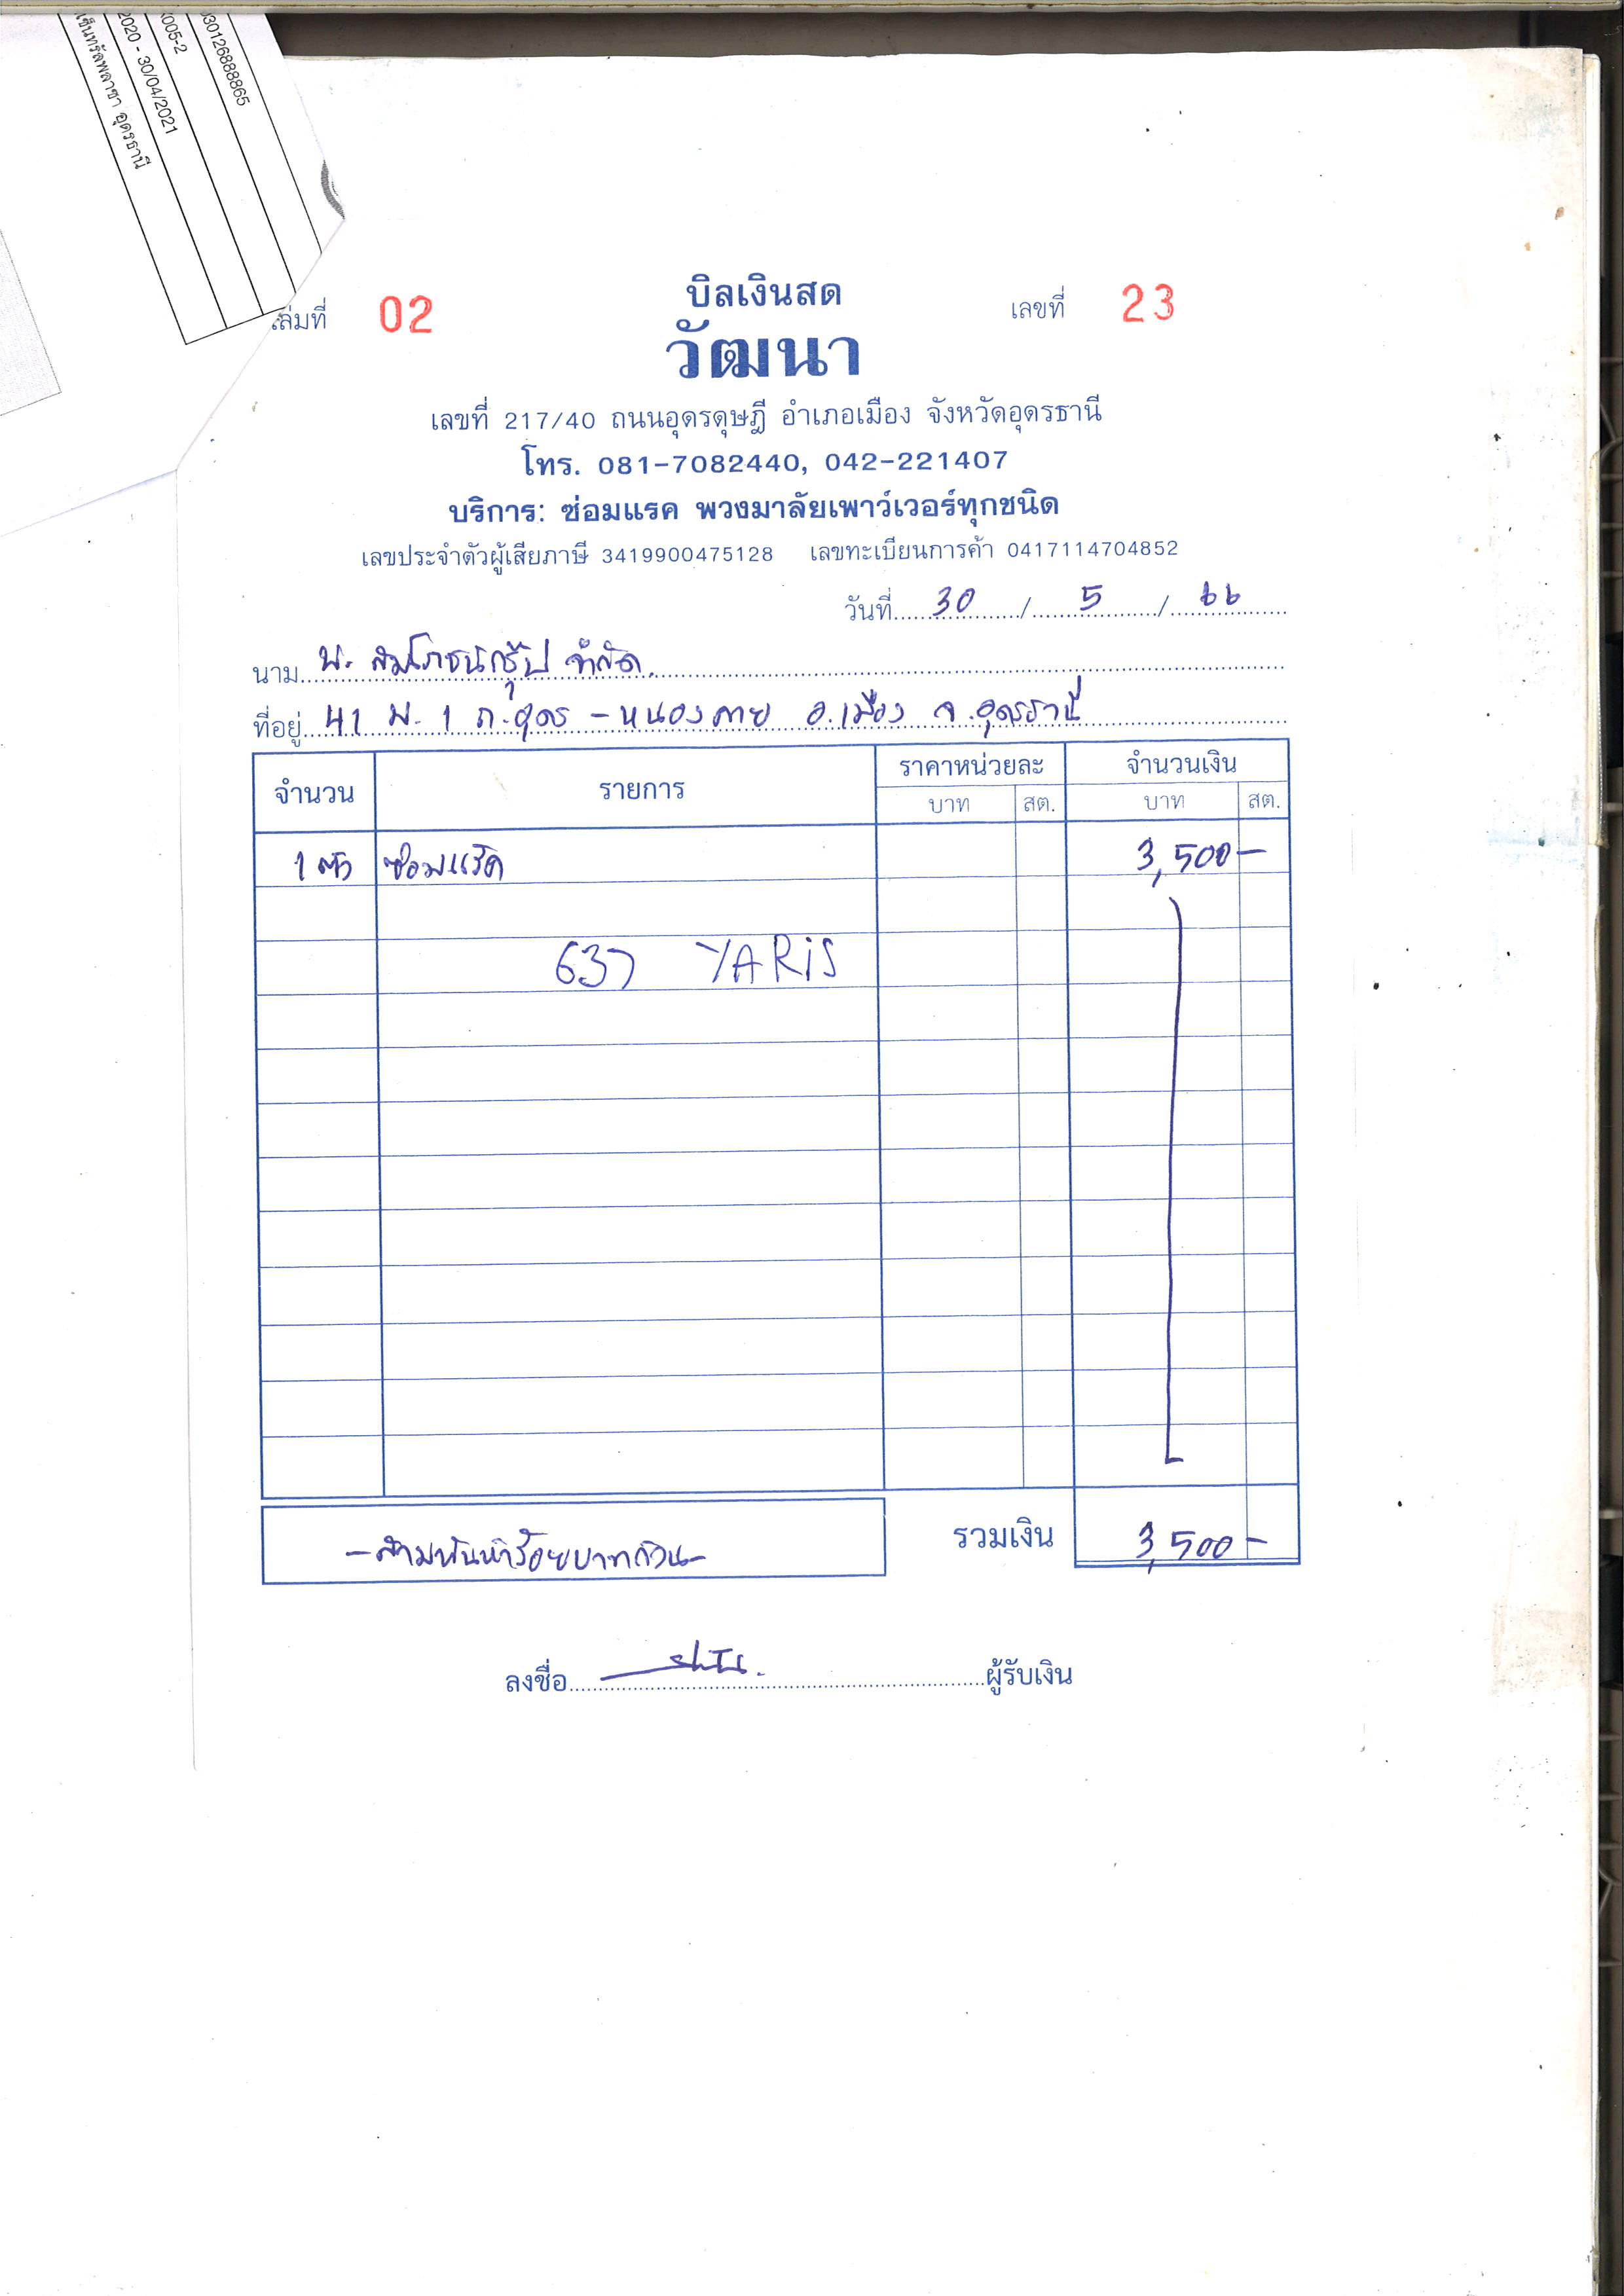 03012688865
005-2
2020 - 30/04/2021
เซ็นทรัลพลาซา อุดรธานี
เล่มที่ 02
บิลเงินสด
เลขที่ 23
วัฒนา
เลขที่ 217/40 ถนนอุดรดุษฎี อำเภอเมือง จังหวัดอุดรธานี
โทร. 081-7082440, 042-221407
บริการ: ซ่อมแรค พวงมาลัยเพาว์เวอร์ทุกชนิด
เลขประจำตัวผู้เสียภาษี 3419900475128 เลขทะเบียนการค้า 0417114704852
วันที่ 30 / 5 / 66
นาม บ. สมโภชน์กรุ๊ป จำกัด.
ที่อยู่ 41 ม. 1 ถ.อุดร - หนองคาย อ.เมือง จ.อุดรธานี
จำนวน รายการ ราคาหน่วยละ จำนวนเงิน
บาท สต. บาท สต.
1 ตัว ซ่อมแร็ค 3,500-
637 YARiS
-สามพันห้าร้อยบาทถ้วน- รวมเงิน 3,500-
ลงชื่อ ผู้รับเงิน